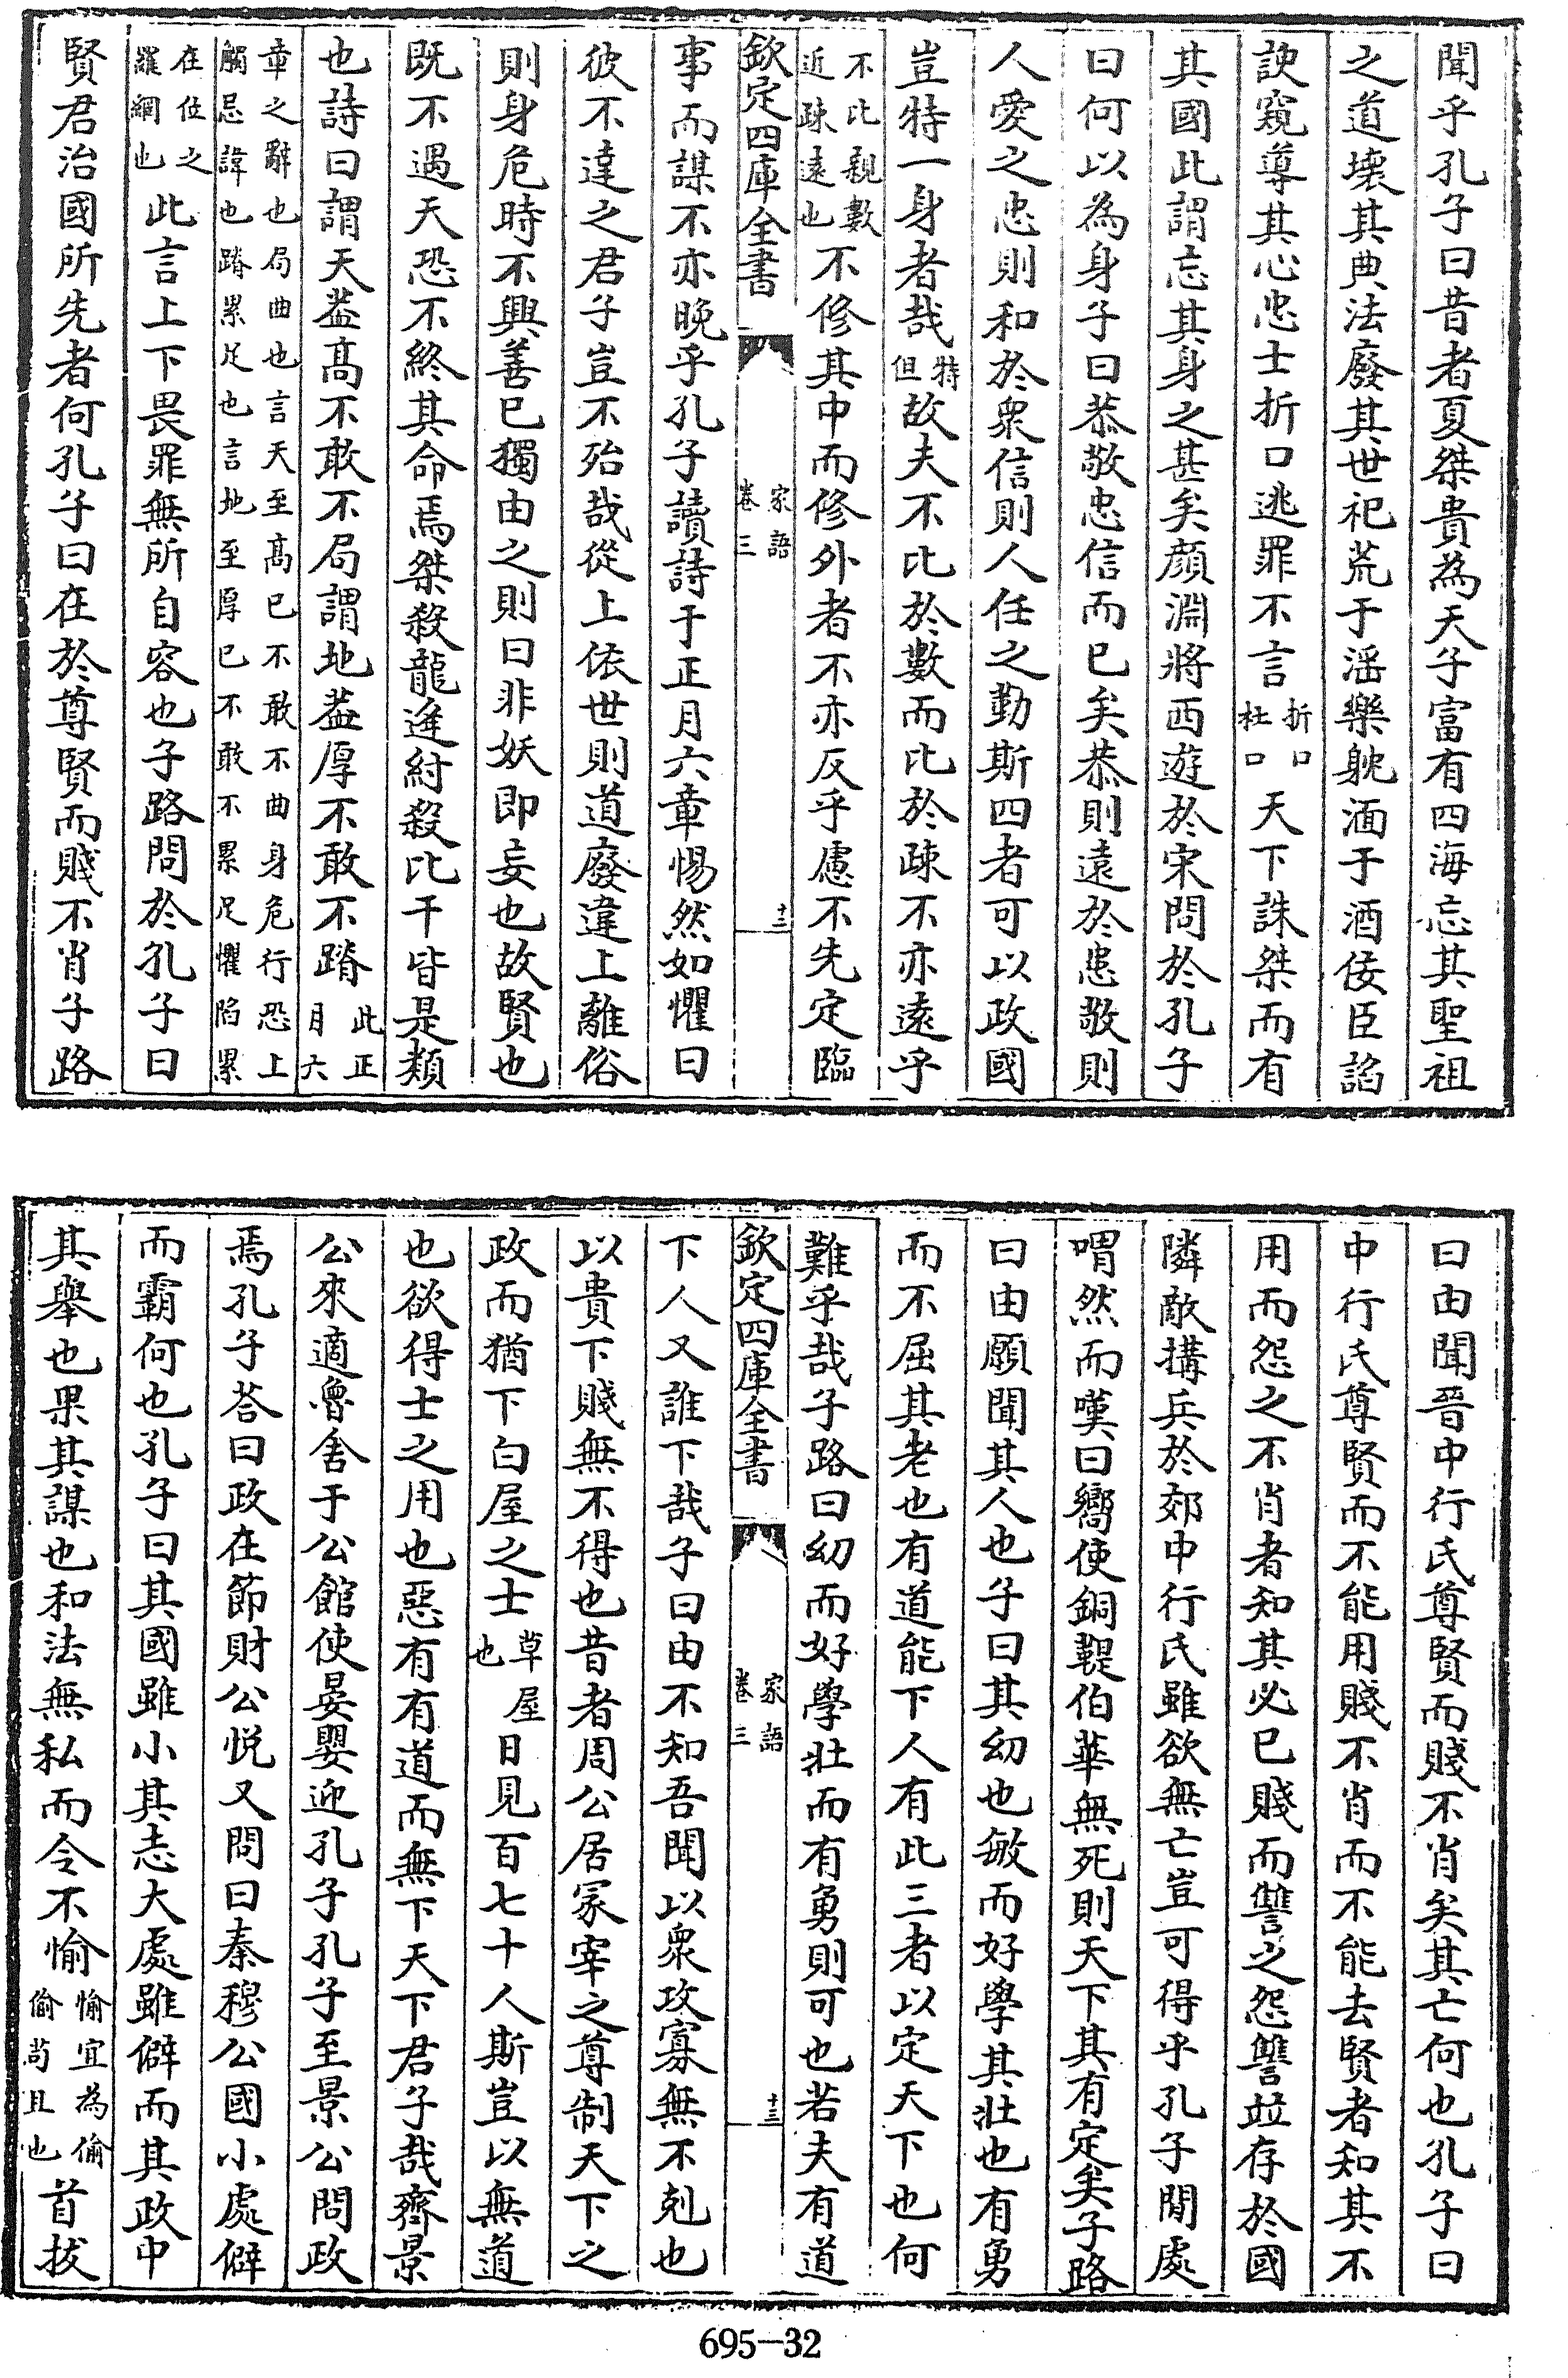 聞乎孔子曰昔者夏桀貴為天子富有四海忘其聖祖
之道壞其典法廢其世祀荒于滛樂躭湎于酒佞臣謟
諛窺導其心忠士折口逃罪不言折口杜口天下誅桀而有
其國此謂忘其身之甚矣顔淵將西遊於宋問於孔子
曰何以為身子曰恭敬忠信而已矣恭則遠於患敬則
人愛之忠則和於衆信則人任之勤斯四者可以政國
豈特一身者哉特但故夫不比於數而比於疎不亦遠乎
不比親數近疎遠也不修其中而修外者不亦反乎慮不先定臨
欽定四庫全書 家語卷三 十二
事而謀不亦晚乎孔子讀詩于正月六章惕然如懼曰
彼不達之君子豈不殆哉從上依世則道廢違上離俗
則身危時不興善已獨由之則曰非妖即妄也故賢也
既不遇天恐不終其命焉桀殺龍逄紂殺比干皆是類
也詩曰謂天葢髙不敢不局謂地葢厚不敢不蹐此正月六
章之辭也局曲也言天至髙已不敢不曲身危行恐上觸忌諱也蹐累足也言地至厚已不敢不累足懼陷累
在位之羅網也此言上下畏罪無所自容也子路問於孔子曰
賢君治國所先者何孔子曰在於尊賢而賤不肖子路
曰由聞晉中行氏尊賢而賤不肖矣其亡何也孔子曰
中行氏尊賢而不能用賤不肖而不能去賢者知其不
用而怨之不肖者知其必已賤而讐之怨讐竝存於國
隣敵搆兵於郊中行氏雖欲無亡豈可得乎孔子閒處
喟然而嘆曰嚮使銅鞮伯華無死則天下其有定矣子路
曰由願聞其人也子曰其幼也敏而好學其壯也有勇
而不屈其老也有道能下人有此三者以定天下也何
難乎哉子路曰幼而好學壯而有勇則可也若夫有道
欽定四庫全書 家語卷三 十三
下人又誰下哉子曰由不知吾聞以衆攻寡無不剋也
以貴下賤無不得也昔者周公居冢宰之尊制天下之
政而猶下白屋之士草屋也日見百七十人斯豈以無道
也欲得士之用也惡有有道而無下天下君子哉齊景
公來適魯舍于公館使晏嬰迎孔子孔子至景公問政
焉孔子荅曰政在節財公悦又問曰秦穆公國小處僻
而霸何也孔子曰其國雖小其志大處雖僻而其政中
其舉也果其謀也和法無私而令不愉愉宜為偷偷苟且也首拔
695-32